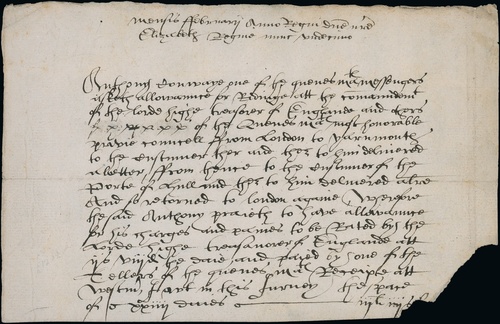 mensis ffebruarij Anno Regni dne nre
Elizabeth Regine nunc undecimo
Anthony one of the quenes matꝭ messengers
asketh allowaunce for Rydinge att the comaundemt
of the lorde highe treasorer of Englande and
of the Quenes matꝭ most honorable
privie councell ffrom London to Yarmouth
to the Custumer ther and ther to him delivered
a letter ffrom thence to the Custumer of the
Porte of Hull and ther to him delivered a lre
And so retorned to london againe Wherfore
the sd Anthony praieth to have allowaunce
for his charges and paines to be Rated by the
Lorde highe treasourer of Englande att
ijs viijd the daie and paied by one of the
Tellers of the quenes matꝭ Receipte att
Westmr in this Jurney the space
of xxiiij daies